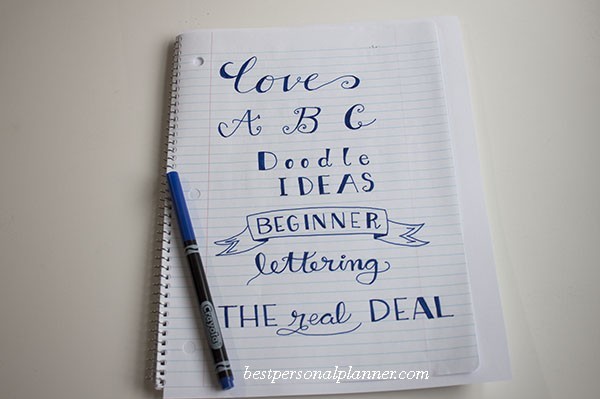 Love
A B C
Doodle
IDEAS
BEGINNER
lettering
THE real DEAL
Crayola
bestpersonalplanner.com